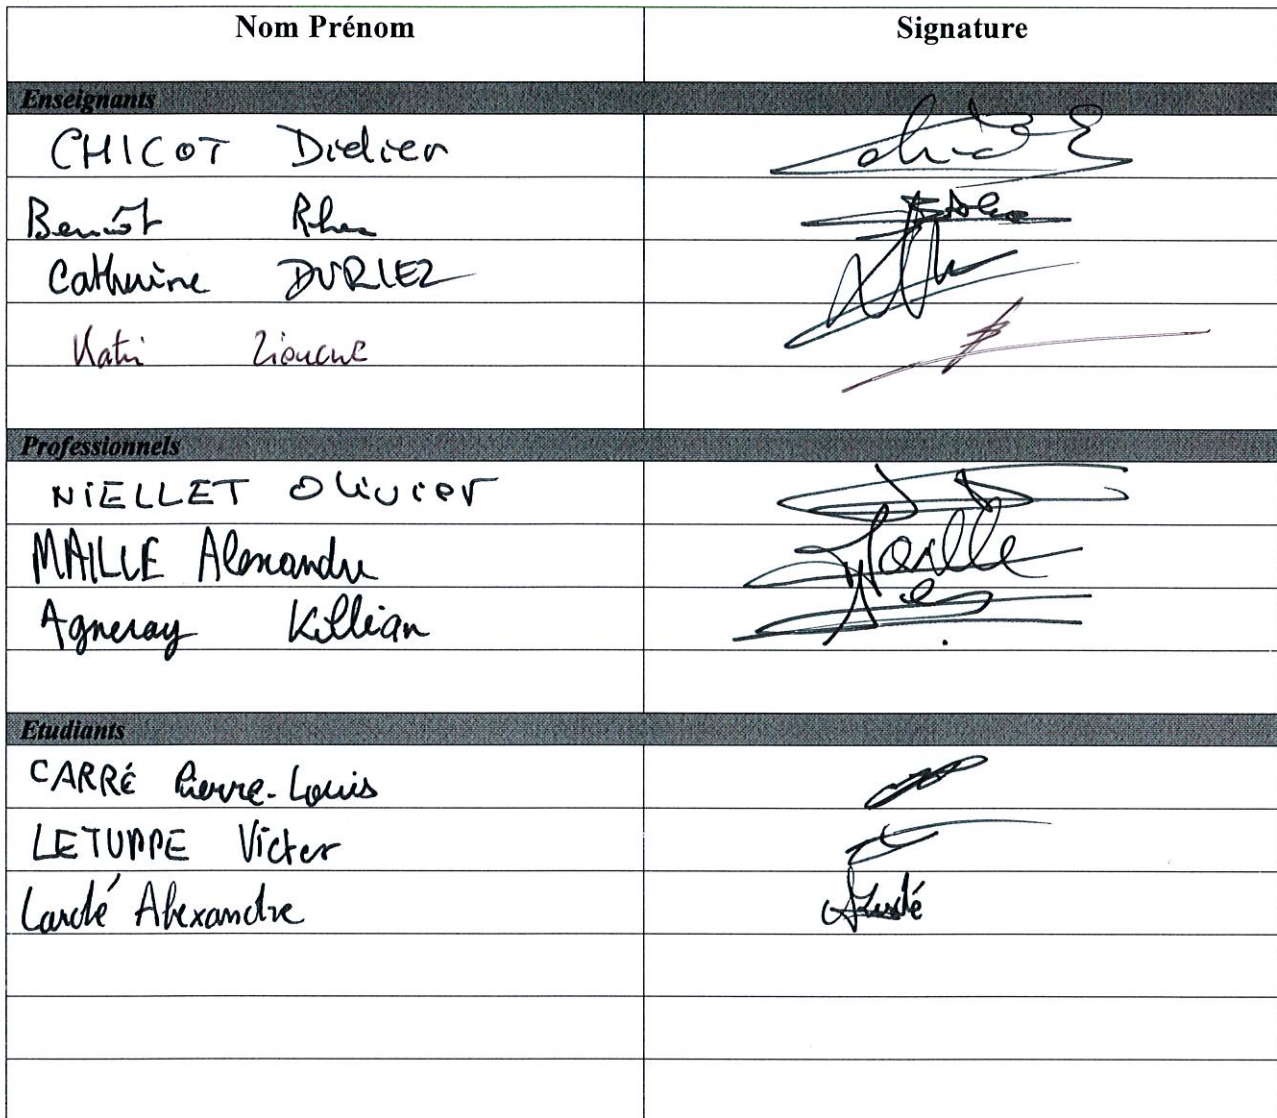 Nom Prénom Signature
Enseignants
CHICOT Didier
Benoît
Catherine DURIEZ
Professionnels
NIELLET Olivier
MAILLE Alexandre Maille
Agneray Killian
Etudiants
CARRÉ Pierre-Louis
LETUPPE Victor
Lardé Alexandre ALardé